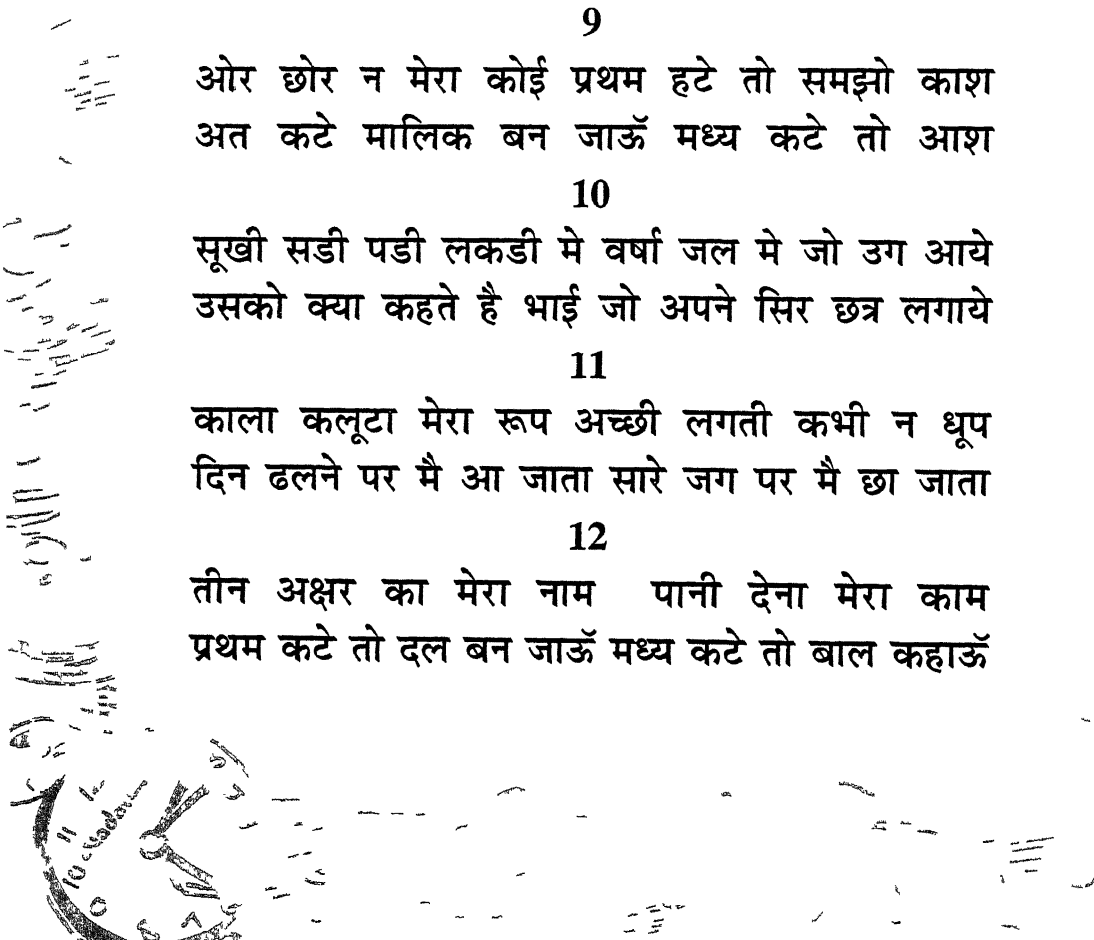 9
ओर छोर न मेरा कोई प्रथम हटे तो समझो काश
अत कटे मालिक बन जाऊॅ मध्य कटे तो आश
10
सूखी सडी पडी लकडी मे वर्षा जल मे जो उग आये
उसको क्या कहते है भाई जो अपने सिर छत्र लगाये
11
काला कलूटा मेरा रूप अच्छी लगती कभी न धूप
दिन ढलने पर मै आ जाता सारे जग पर मै छा जाता
12
तीन अक्षर का मेरा नाम पानी देना मेरा काम
प्रथम कटे तो दल बन जाऊॅ मध्य कटे तो बाल कहाऊॅ